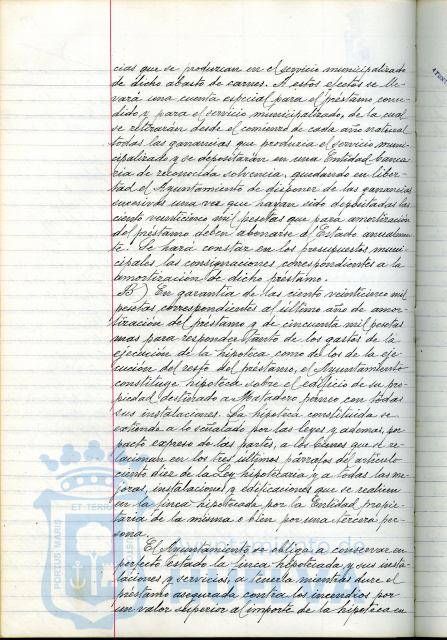 cias que se produzcan en el servicio municipalizado
de dicho abasto de carnes. A estos efectos se lle-
vará una cuenta especial para el préstamo conce-
dido y para el servicio municipalizado, de la cual
se retirarán desde el comienzo de cada año natural
todas las ganancias que produzca el servicio muni-
cipalizado y se depositarán en una Entidad banca
ria de reconocida solvencia, quedando en liber-
tad el Ayuntamiento de disponer de las ganancias
sucesivas una vez que hayan sido depositadas las
ciento veinticinco mil pesetas que para amortización
del préstamo deben abonarse al Estado anualmen-
te. Se hará constar en los presupuestos muni-
cipales las consignaciones correspondientes a la
amortización de dicho préstamo.
B) En garantía de las ciento veinticinco mil
pesetas correspondientes al último año de amor-
tización del préstamo y de cincuenta mil pesetas
mas para responder tanto de los gastos de la
ejecución de la hipoteca como de los de la eje-
cución del resto del préstamo, el Ayuntamiento
constituye hipoteca sobre el edificio de su pro-
piedad destinado a Matadero público con todas
sus instalaciones. La hipoteca constituida se
extiende a lo señalado por las leyes y ademas, por
pacto expreso de las partes, a los bienes que se re-
lacionan en los tres últimos párrafos del artículo
ciento diez de la Ley hipotecaria y a todas las me-
joras, instalaciones y edificaciones que se realicen
en la finca hipotecada por la Entidad propie-
taria de la misma o bien por una tercera per-
sona.
El Ayuntamiento se obliga a conservar en
perfecto estado la finca hipotecada y sus insta-
laciones y servicios, a tenerla mientras dure el
préstamo asegurada contra los incendios por
un valor superior al importe de la hipoteca en
ET TERRAE
PORTUS MARIS
Ayuntamiento de